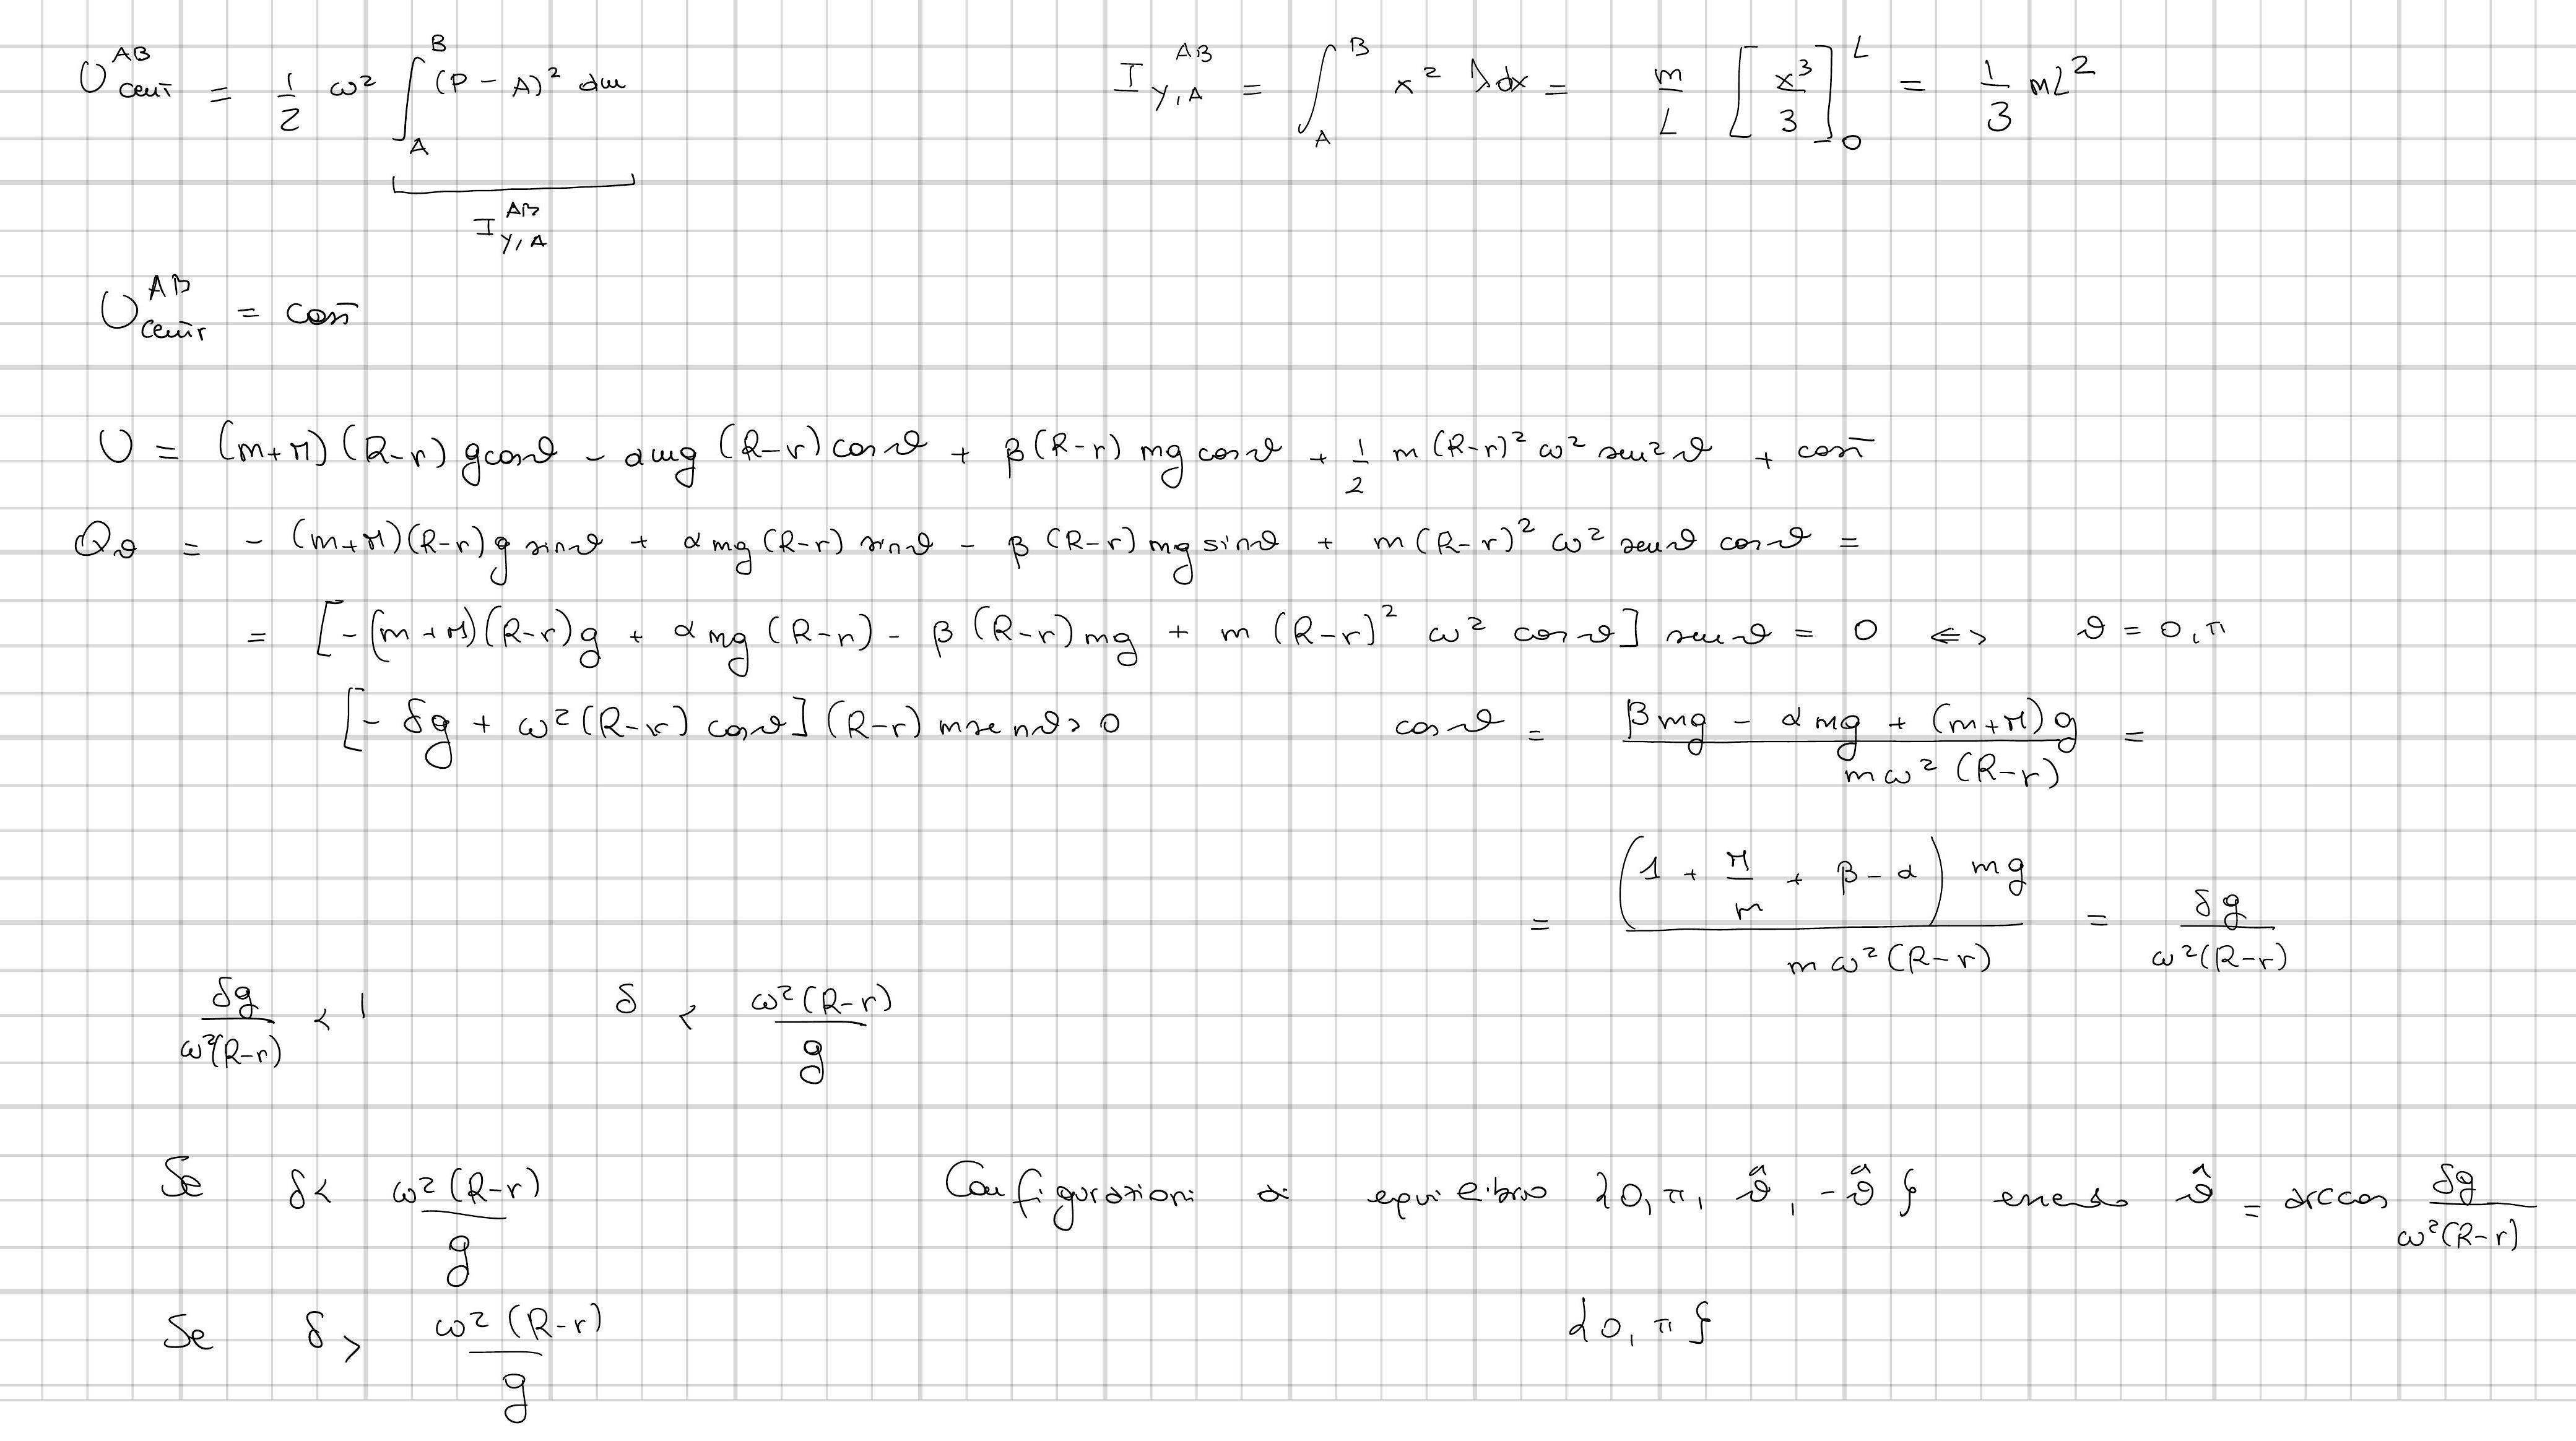 U_{cent}^{AB} = \frac{1}{2} ω² ∫_A^B (P - A)² dm    I_{y,A}^{AB} = ∫_A^B x² λdx = \frac{m}{L} [\frac{x³}{3}]_0^L = \frac{1}{3} mL²
I_{y,A}^{AB}
U_{centr}^{AB} = cost
U = (m+M)(R-r) g cosϑ - αmg (R-r) cosϑ + β(R-r) mg cosϑ + \frac{1}{2} m(R-r)² ω² sen²ϑ + cost
Q_ϑ = - (m+M)(R-r)g sinϑ + αmg(R-r) sinϑ - β (R-r) mg sinϑ + m(R-r)² ω² senϑ cosϑ =
= [-(m+M)(R-r)g + αmg (R-r) - β (R-r) mg + m (R-r)² ω² cosϑ] senϑ = 0 <=> ϑ = 0, π
[- δg + ω²(R-r) cosϑ] (R-r) m senϑ > 0    cosϑ = \frac{βmg - αmg + (m+M)g}{mω² (R-r)} =
= \frac{(1 + \frac{M}{m} + β - α) mg}{mω²(R-r)} = \frac{δg}{ω²(R-r)}
\frac{δg}{ω²(R-r)} < 1    δ < \frac{ω²(R-r)}{g}
Se δ < \frac{ω²(R-r)}{g}    Configurazioni di equilibrio {0, π, \hat{ϑ}, -\hat{ϑ}} essendo \hat{ϑ} = arccos \frac{δg}{ω²(R-r)}
Se δ > \frac{ω²(R-r)}{g}    {0, π}